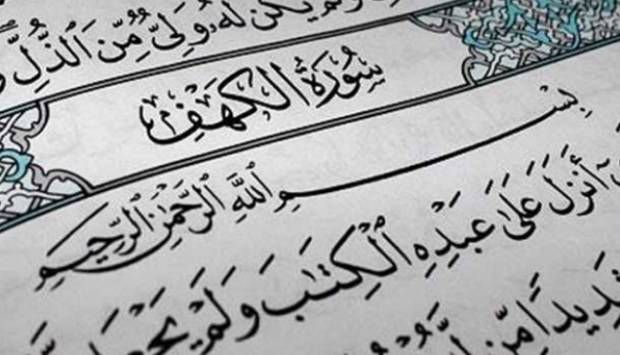 يَكُن لَّهُۥ وَلِيٌّ مِّنَ ٱلذُّلِّ
سُورَةُ الكَهْفِ
بِسْمِ ٱللَّهِ ٱلرَّحْمَٰنِ ٱلرَّحِيمِ
أَنزَلَ عَلَىٰ عَبْدِهِ ٱلْكِتَٰبَ وَلَمْ يَجْعَل
مِّن